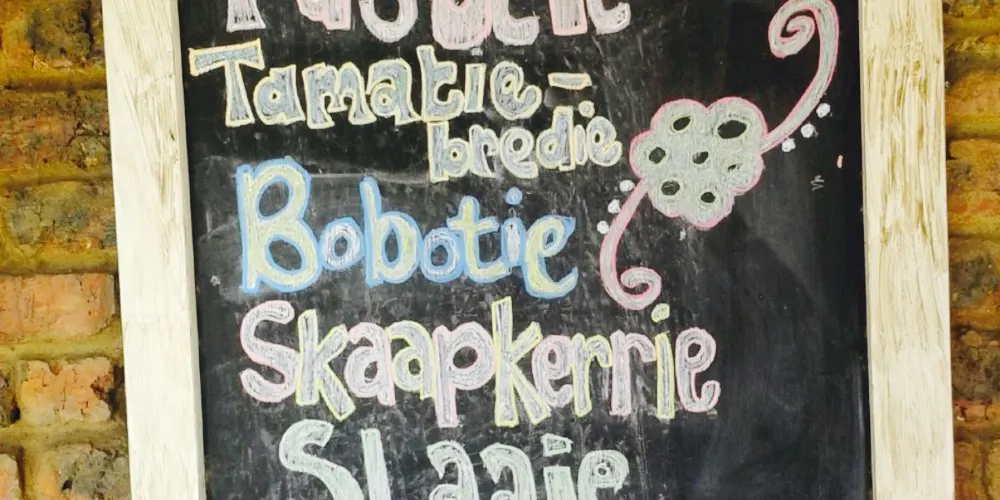 Tamatie-
bredie
Bobotie
Skaapkerrie
Slaaie